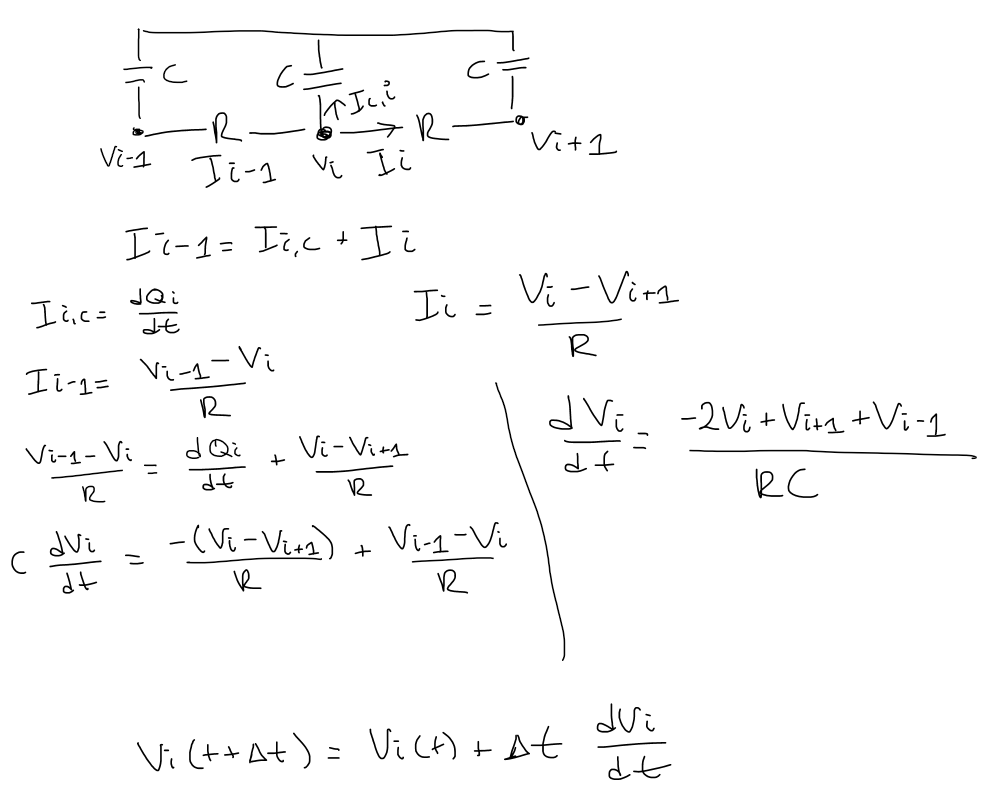 C C C
I_{c,i}
R R
V_{i-1} I_{i-1} V_i I_i V_{i+1}
I_{i-1} = I_{i,c} + I_i
I_{i,c} = \frac{dQ_i}{dt}
I_i = \frac{V_i - V_{i+1}}{R}
I_{i-1} = \frac{V_{i-1} - V_i}{R}
\frac{V_{i-1} - V_i}{R} = \frac{dQ_i}{dt} + \frac{V_i - V_{i+1}}{R}
C \frac{dV_i}{dt} = \frac{-(V_i - V_{i+1})}{R} + \frac{V_{i-1} - V_i}{R}
\frac{dV_i}{dt} = \frac{-2V_i + V_{i+1} + V_{i-1}}{RC}
V_i(t+\Delta t) = V_i(t) + \Delta t \frac{dV_i}{dt}